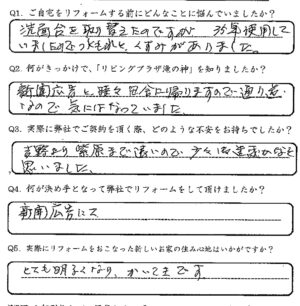 Q1. ご自宅をリフォームする前にどんなことに悩んでいましたか？
洗面台を取り替えたのですが 35年使用して
いましたのでつともれと、くすみがありました。
Q2. 何がきっかけで、「リビングプラザ滝の神」を知りましたか？
新聞広告と、時々 見合に帰りますので通り道
なので 気にはなっていました。
Q3. 実際に弊社でご契約を頂く際、どのような不安をお持ちでしたか？
吉野より 紫原まで遠いので 少々
思いました。
Q4. 何が決め手となって弊社でリフォームをして頂けましたか？
新聞広告にて
Q5. 実際にリフォームをおこなった新しいお家の住み心地はいかがですか？
とても明るくなり、かいてきです